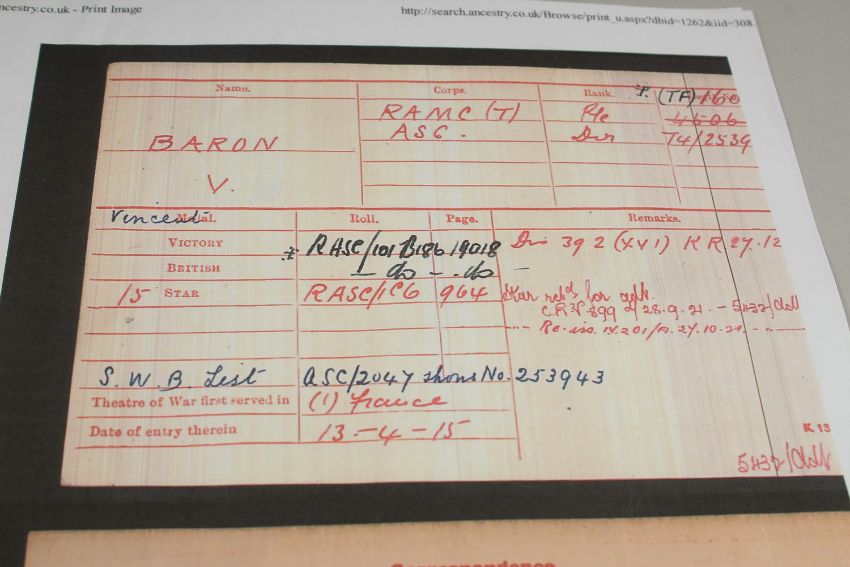 ncestry.co.uk - Print Image
http://search.ancestry.co.uk/Browse/print_u.aspx?dbid=1262&iid=308
Name. Corps. Rank.
RAMC (T) Pte (TF) 160
4506
BARON ASC. Dvr T4/2539
V.
Vincent
Medal. Roll. Page. Remarks.
VICTORY RASC/101 B186 19018 Dis 392 (XVI) KR 27.12
BRITISH — do — - do —
15 STAR RASC/1C6 964 Star
28.9.21. — 5432/Adt
27.10.21.
S. W. B. List ASC/2047 shows No. 253943
Theatre of War first served in (1) France
Date of entry therein 13-4-15
K 13
5432/Adt
Correspondence